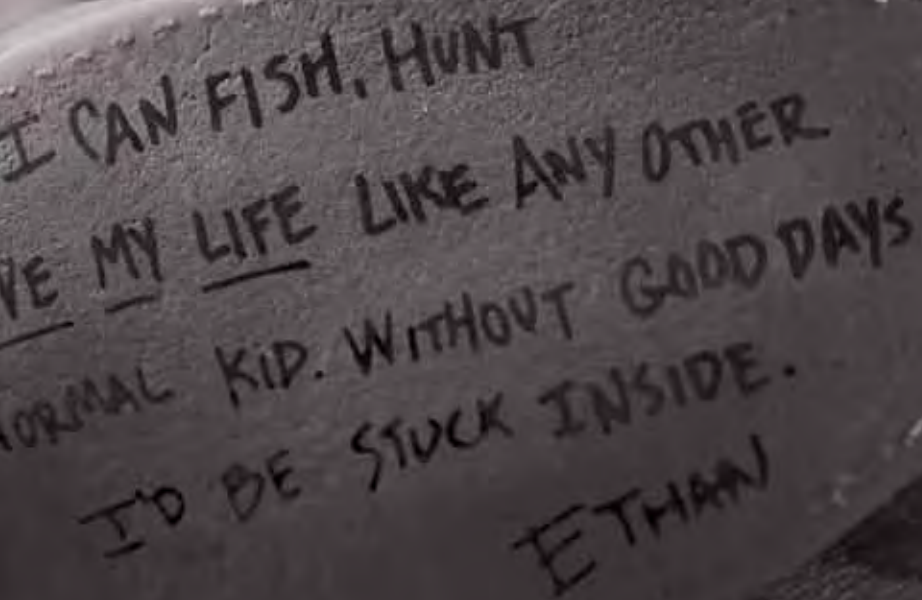 I CAN FISH, HUNT
VE MY LIFE LIKE ANY OTHER
NORMAL KID. WITHOUT GOOD DAYS
I'D BE STUCK INSIDE.
ETHAN